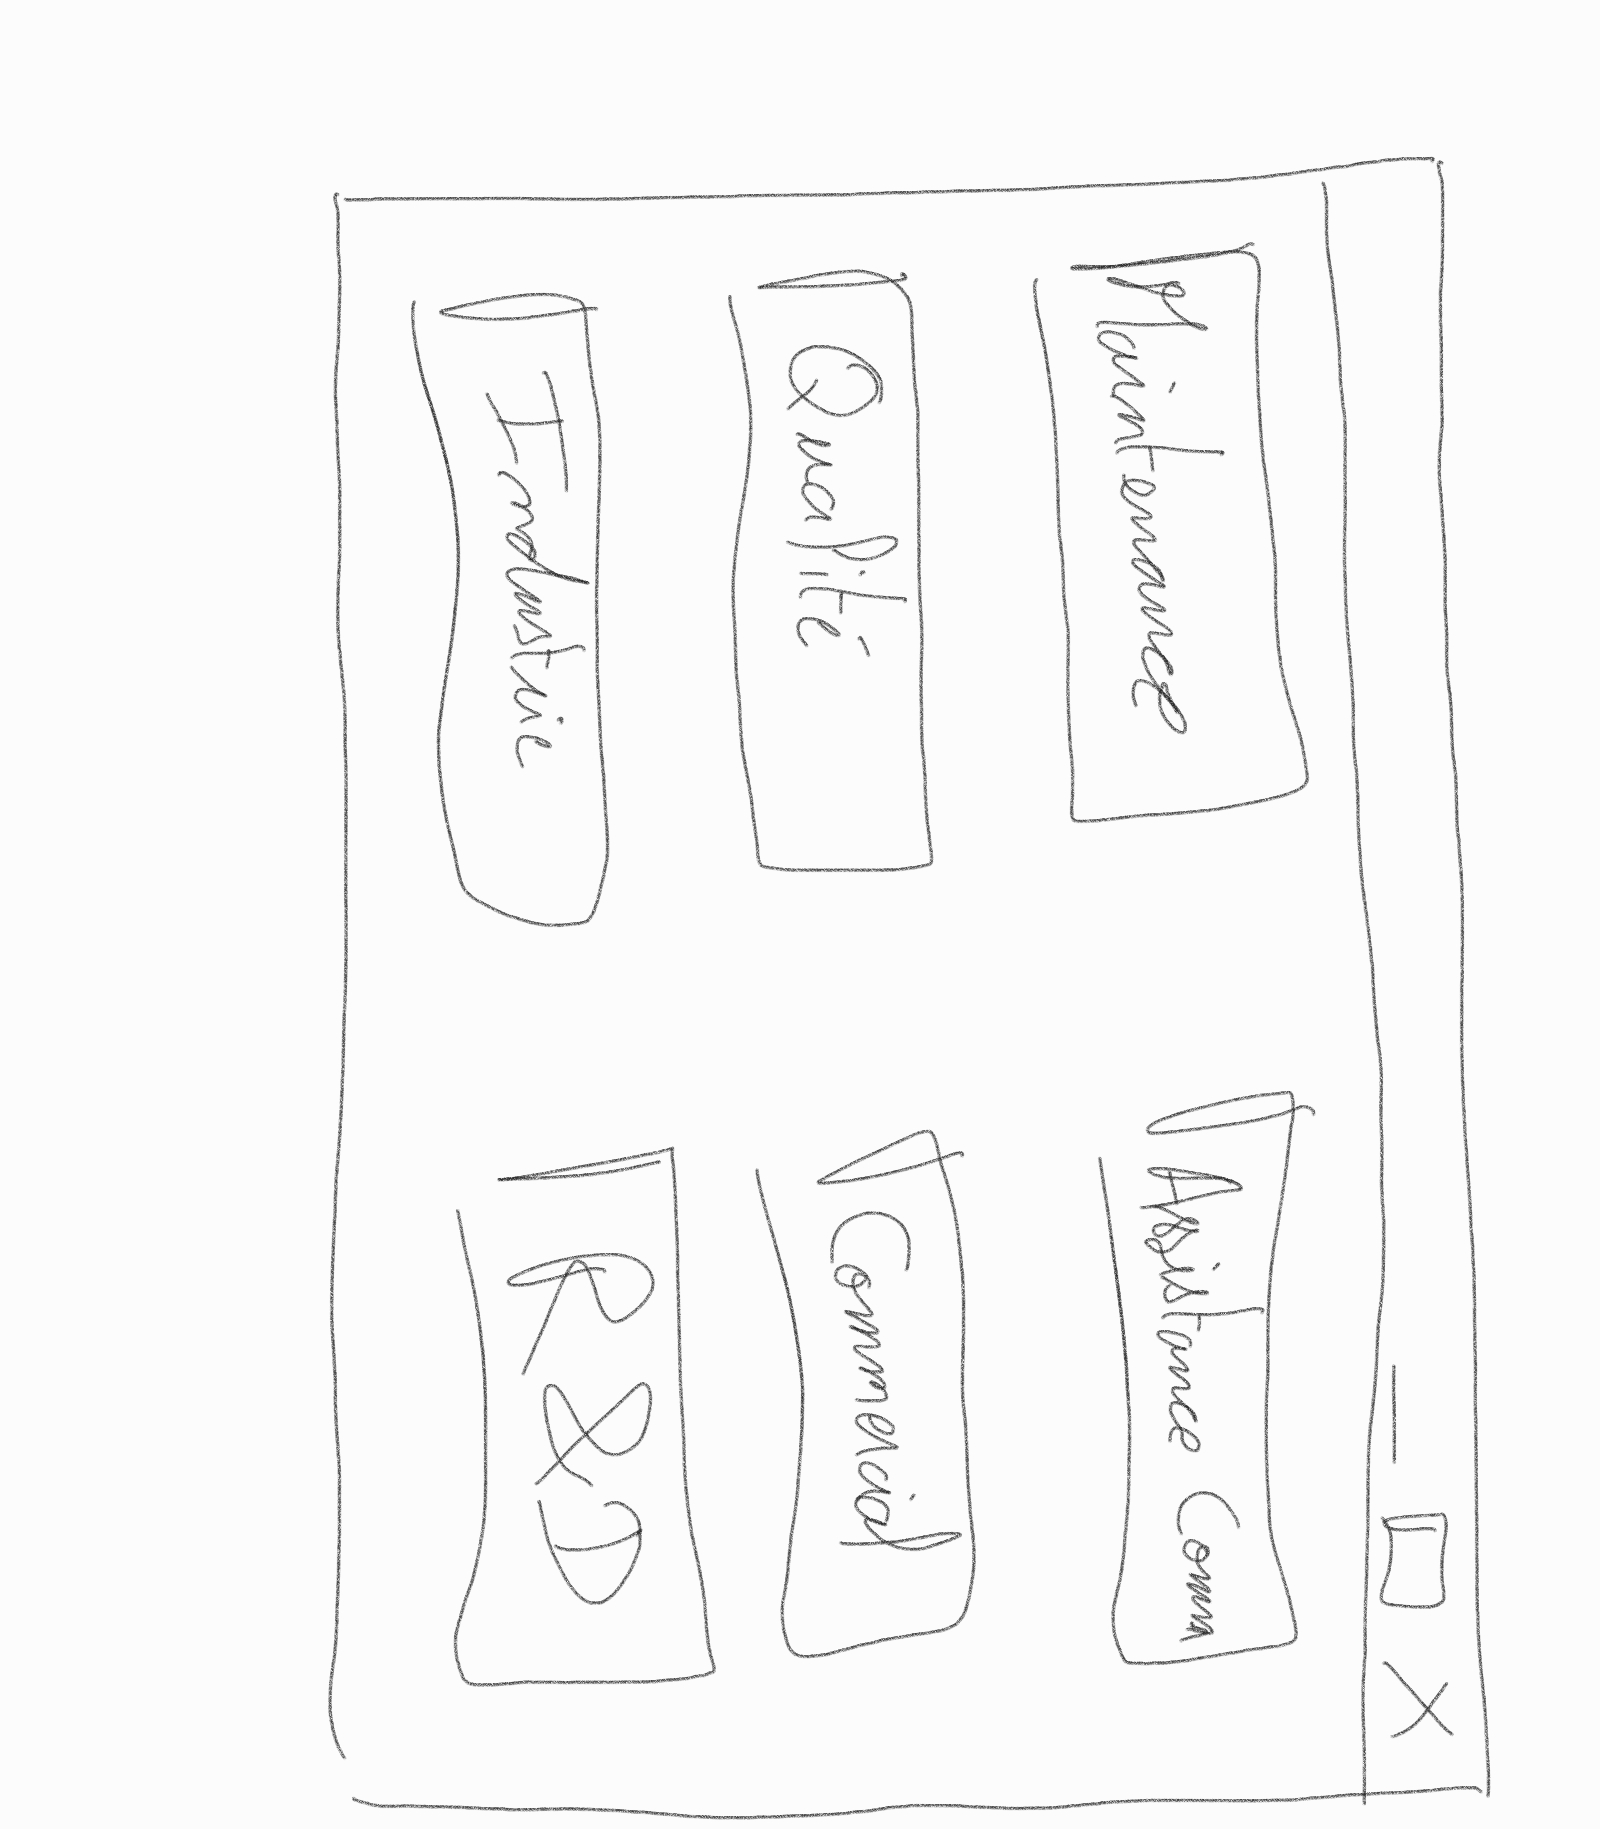 Maintenance
Assistance Comm
Qualité
Commercial
Industrie
R&D